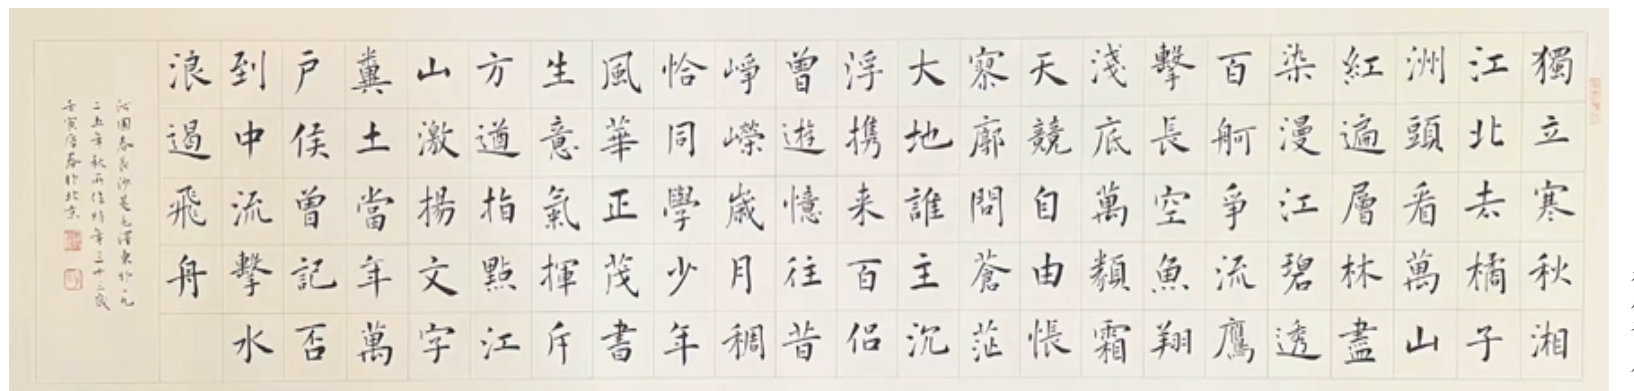 獨立寒秋湘
江北去橘子
洲頭看萬山
紅遍層林盡
染漫江碧透
百舸爭流鷹
擊長空魚翔
淺底萬類霜
天競自由悵
寥廓問蒼茫
大地誰主沉
浮携来百侣
曾遊憶往昔
崢嶸歲月稠
恰同學少年
風華正茂書
生意氣揮斥
方遒指點江
山激揚文字
糞土當年萬
户侯曾記否
到中流擊水
浪遏飛舟
沁園春長沙是毛澤東於一九
二五年秋所作時年三十二歲
壬寅春於北京